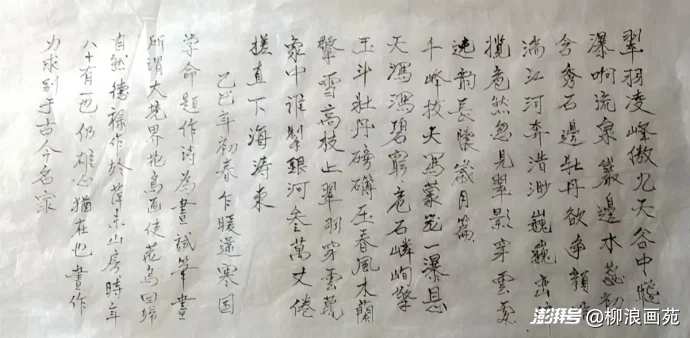 翠羽凌峰傲九天谷中腾
瀑响流泉岩边水蕊初
含秀石边牡丹欲争颜
湍江河奔渺巍巍峦
揽危然忽见翠影穿云
远韵长隂岁月篇
千峰拔天冯蒙笼一瀑悬
天泻泻碧穷危石嶙峋擎
玉斗牡丹磅礴压春风木兰
擎雪高枝上翠羽穿云乱
象中谁掣银河叁万丈倦
搓直下海涛东
乙巳年初春乍暖还寒因
学命题作诗为画试笔画
所谓大境界花鸟画使花鸟回归
自然德禄作於京山房时年
八十有一也仍雄心犹在也画作
力求到于古今名家
澎湃号@柳浪画苑